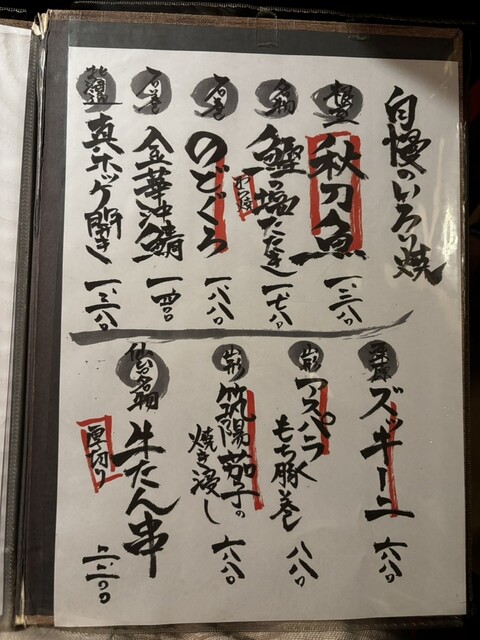 自慢のいろり焼
秋刀魚
一、二八〇
名物
鰹の塩たたき
わら焼
一、七八〇
石巻
のどぐろ
一、八八〇
石巻
金華沖鯖
一、四〇〇
北海道
真ホッケ開き
一、三八〇
ズッキーニ
六八〇
山形
アスパラ
もち豚巻
八八〇
山形
筑陽茄子の
焼き浸し
六八〇
仙台名物
牛たん串
厚切り
二、二〇〇